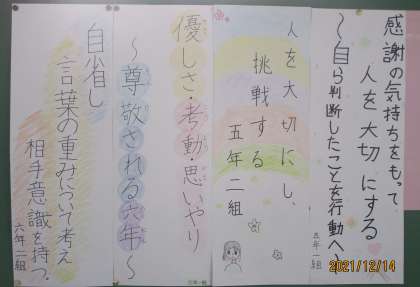 感謝の気持ちをもって
人を大切にする
〜自ら判断したことを行動へ〜
五年一組
人を大切にし、
挑戦する
五年二組
優しさ・考動・思いやり
〜尊敬される六年〜
六年一組
自省し
言葉の重みについて考え
相手意識を持つ。
六年二組
2021/12/14